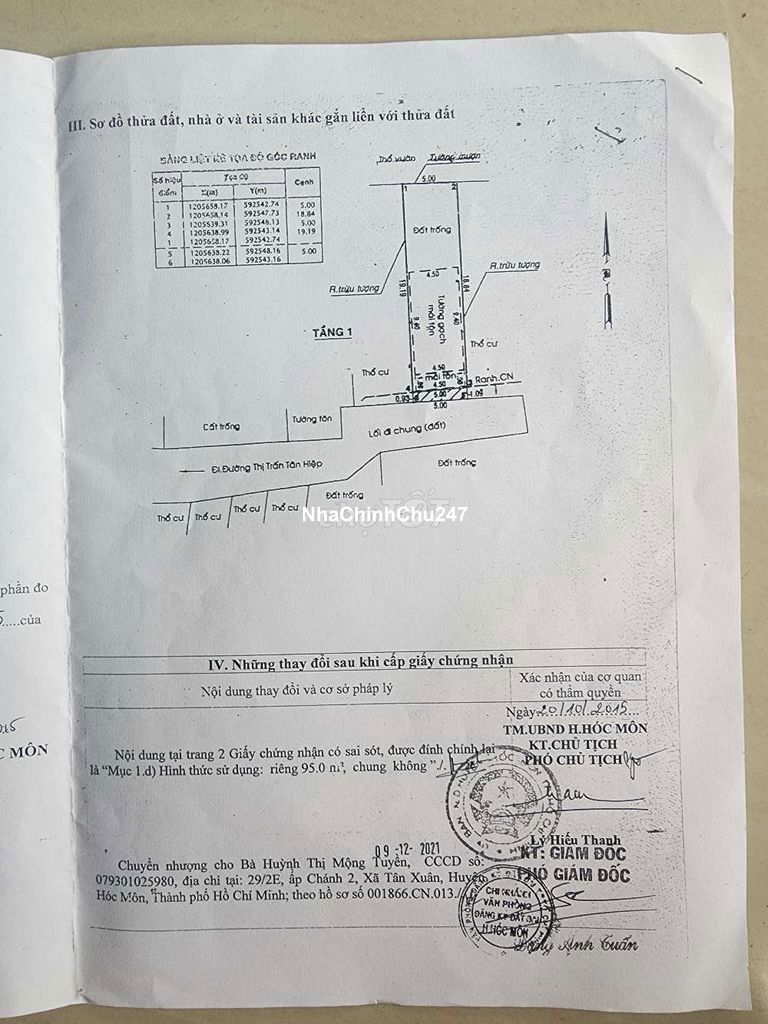 III. Sơ đồ thửa đất, nhà ở và tài sản khác gắn liền với thửa đất
BẢNG LIỆT KÊ TỌA ĐỘ GÓC RANH
Số hiệu điểm
Tọa độ
X(m)
Y(m)
Cạnh
1 1205658.17 592542.74 5.00
2 1205658.14 592547.73 18.84
3 1205639.31 592548.13 5.00
4 1205638.99 592543.14 19.19
1 1205658.17 592542.74
5 1205638.22 592548.16 5.00
6 1205638.06 592543.16
Thổ vườn
Tường mượn
5.00
1
2
Đất trống
4.50
R.trừu tượng
R.trừu tượng
19.19
18.84
9.40
9.40
Tường gạch
mái tôn
TẦNG 1
Thổ cư
Thổ cư
4.50
mái tôn
4.50
Ranh.CN
4
3
0.93
5.00
1.09
5.00
Cất trống
Tường tôn
Lối đi chung (đất)
Đi.Đường Thị Trấn Tân Hiệp
Đất trống
Đất trống
Thổ cư
Thổ cư
Thổ cư
Thổ cư
CHỢ TỐT
NhaChinhChu247
phần đo
.....của
C MÔN
IV. Những thay đổi sau khi cấp giấy chứng nhận
Nội dung thay đổi và cơ sở pháp lý
Xác nhận của cơ quan
có thẩm quyền
Ngày 20/10/2015
TM.UBND H.HÓC MÔN
KT.CHỦ TỊCH
PHÓ CHỦ TỊCH
Nội dung tại trang 2 Giấy chứng nhận có sai sót, được đính chính lại
là "Mục 1.d) Hình thức sử dụng: riêng 95.0 m², chung không "./.
Lý Hiếu Thanh
09 -12- 2021
KT: GIÁM ĐỐC
PHÓ GIÁM ĐỐC
Chuyển nhượng cho Bà Huỳnh Thị Mộng Tuyền, CCCD số:
079301025980, địa chỉ tại: 29/2E, ấp Chánh 2, Xã Tân Xuân, Huyện
Hóc Môn, Thành phố Hồ Chí Minh; theo hồ sơ số 001866.CN.013./.
CHI NHÁNH
VĂN PHÒNG
ĐĂNG KÝ ĐẤT ĐAI
H.HÓC MÔN
Đặng Anh Tuấn